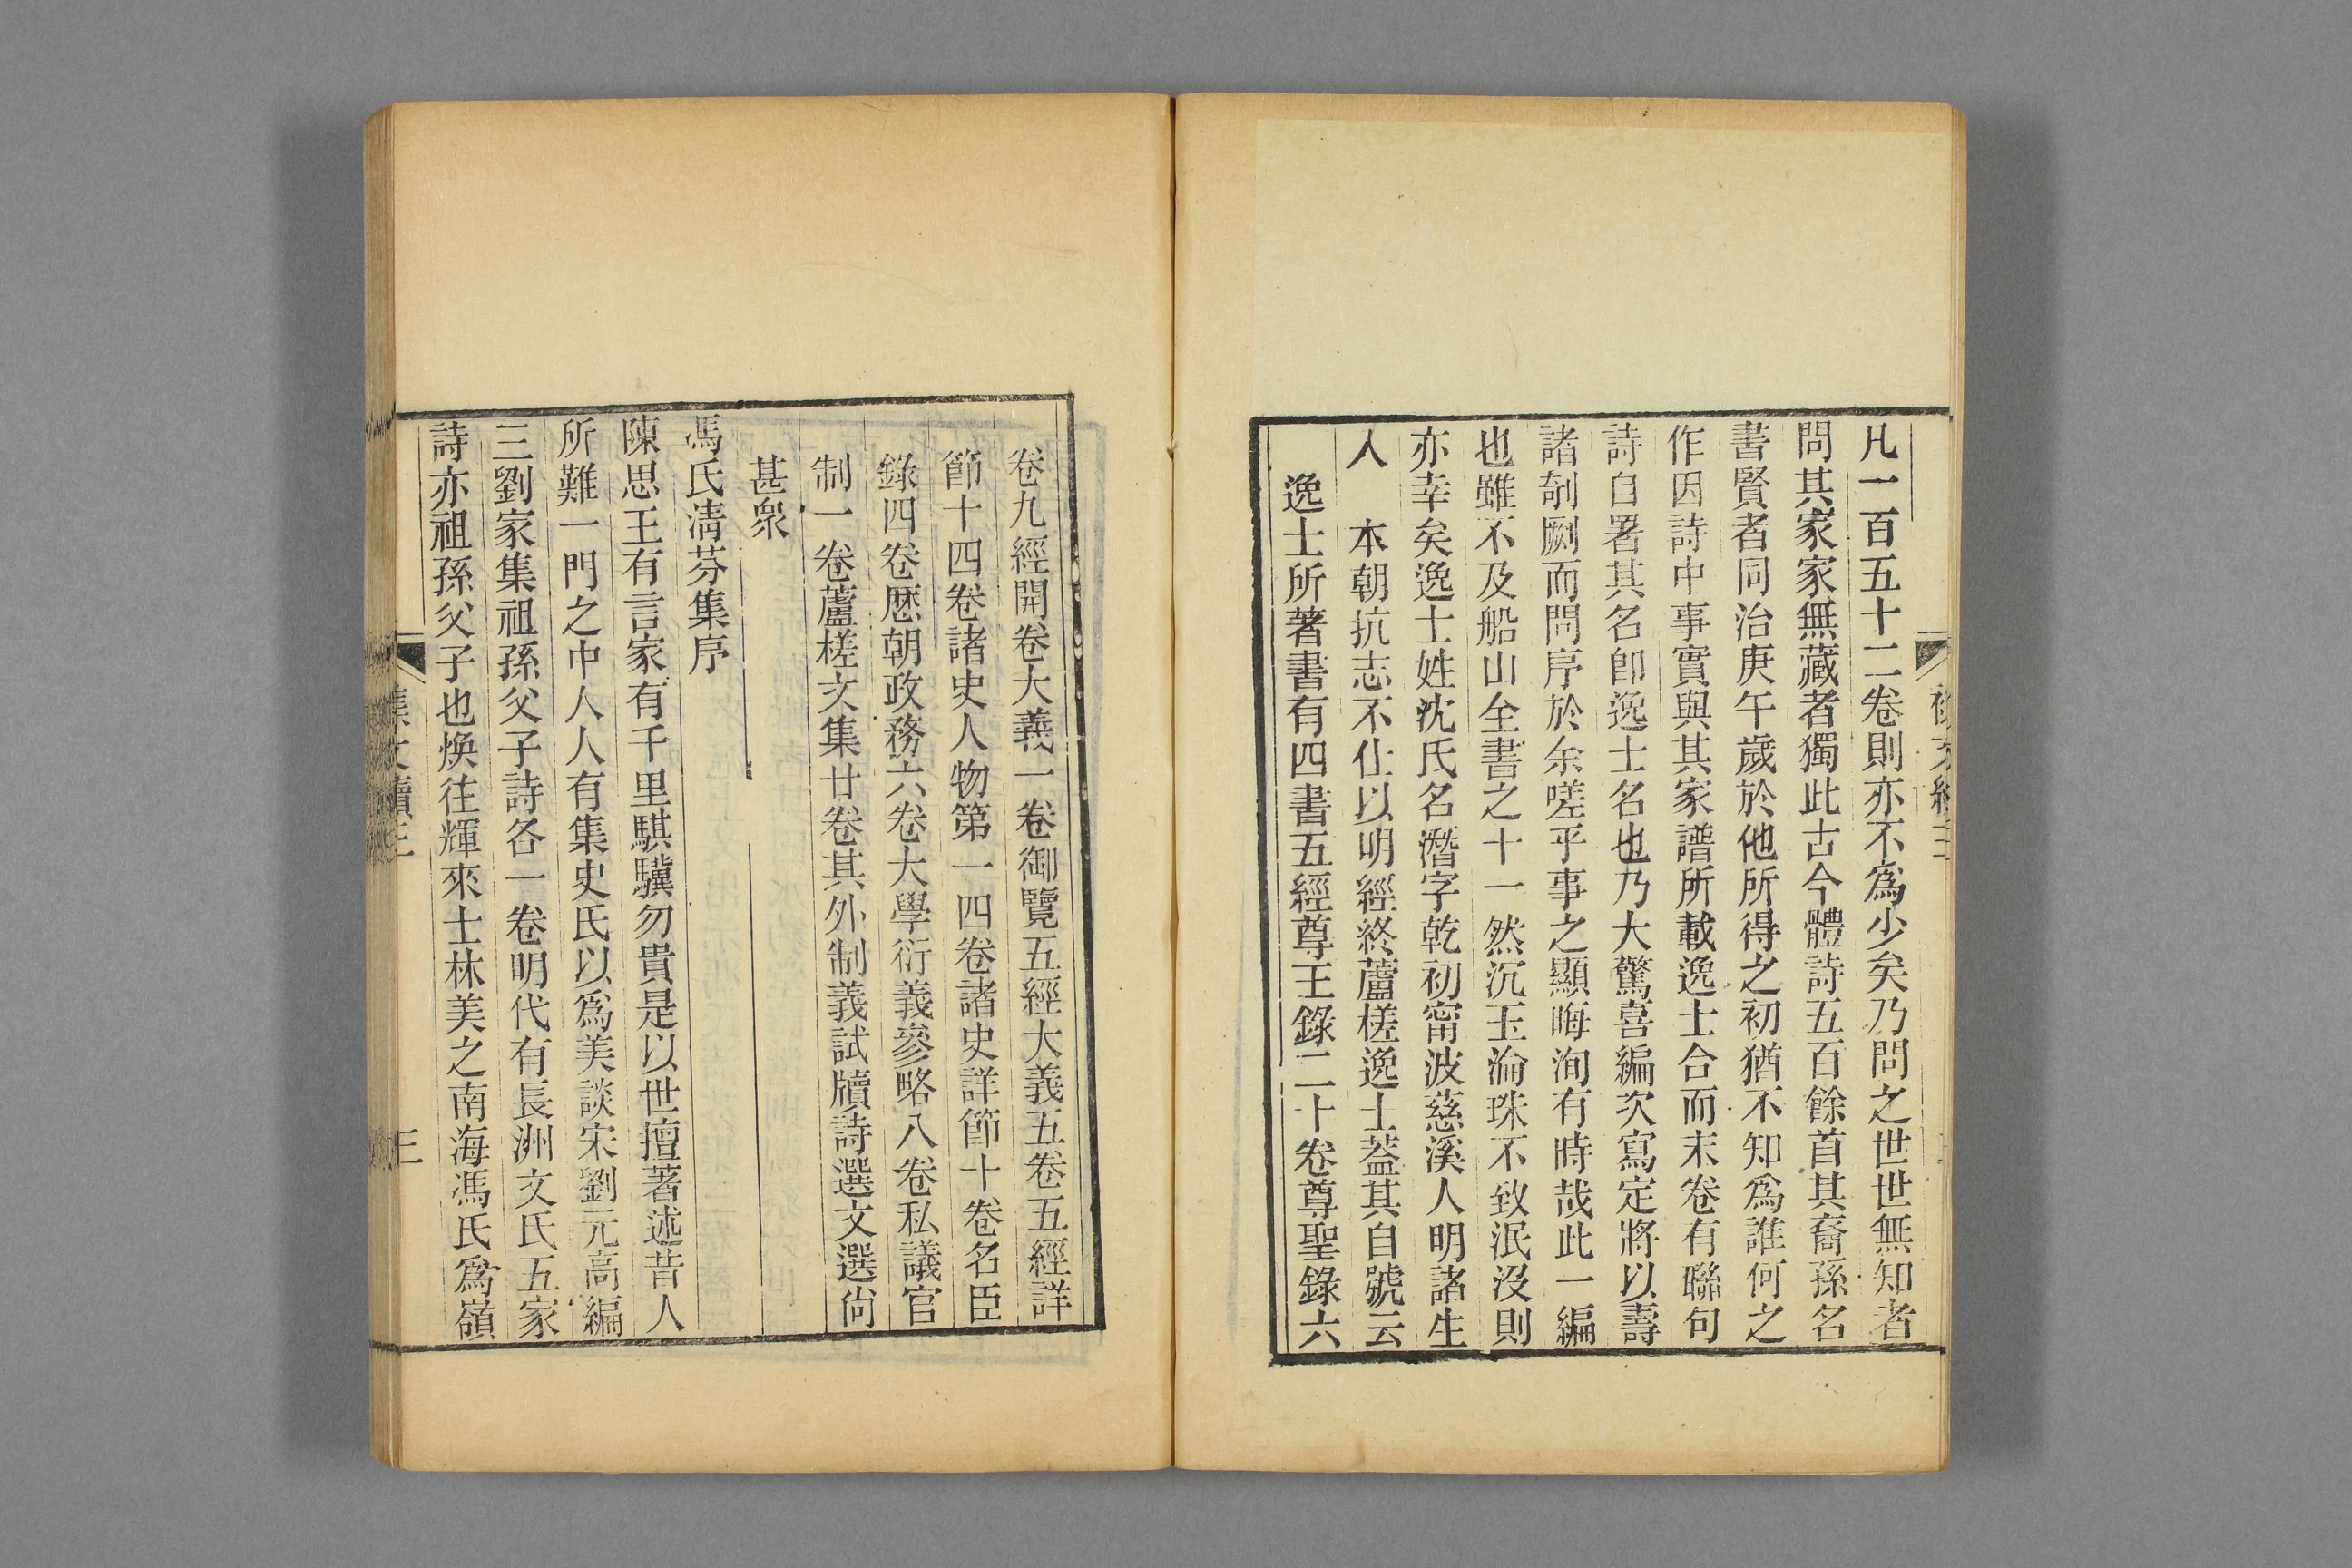 凡一百五十二卷則亦不爲少矣乃問之世世無知者
問其家家無藏者獨此古今體詩五百餘首其裔孫名
書賢者同治庚午歲於他所得之初猶不知爲誰何之
作因詩中事實與其家譜所載逸士合而末卷有聯句
詩自署其名卽逸士名也乃大驚喜編次寫定將以壽
諸剞劂而問序於余嗟乎事之顯晦洵有時哉此一編
也雖不及船山全書之十一然沉玉淪珠不致泯沒則
亦幸矣逸士姓沈氏名濳字乾初甯波慈溪人明諸生
人　本朝抗志不仕以明經終蘆槎逸士蓋其自號云
逸士所著書有四書五經尊王錄二十卷尊聖錄六
卷九經開卷大義一卷御覽五經大義五卷五經詳
節十四卷諸史人物第一四卷諸史詳節十卷名臣
錄四卷歷朝政務六卷大學衍義參略八卷私議官
制一卷蘆槎文集廿卷其外制義試牘詩選文選尙
甚衆
馮氏淸芬集序
陳思王有言家有千里騏驥勿貴是以世擅著述昔人
所難一門之中人人有集史氏以爲美談宋劉元高編
三劉家集祖孫父子詩各一卷明代有長洲文氏五家
詩亦祖孫父子也煥往輝來士林美之南海馮氏爲嶺
集文續三
三